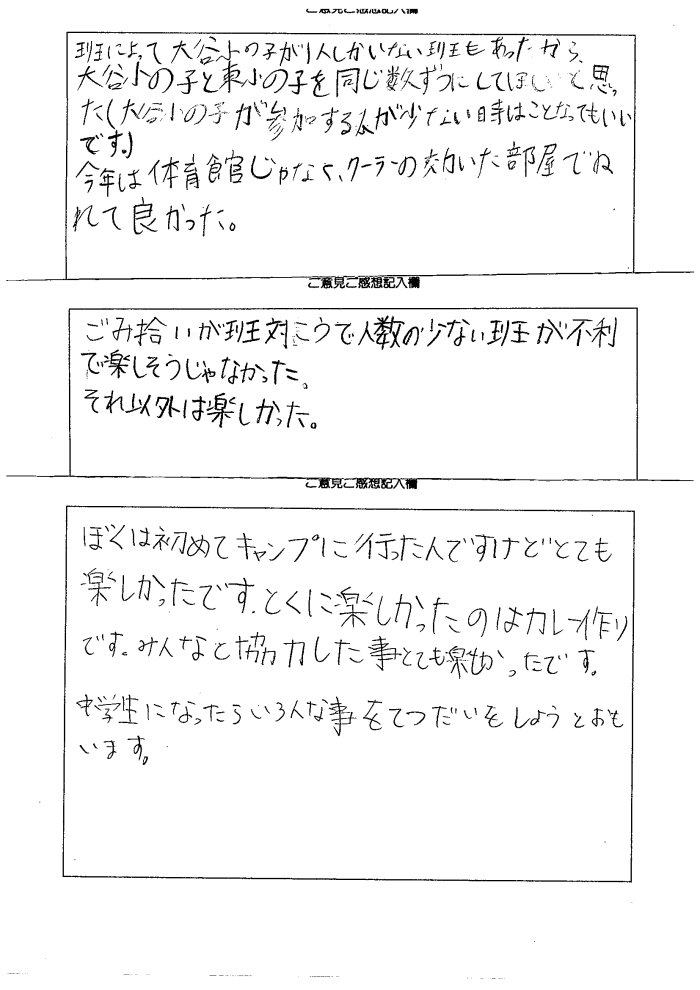 ご意見ご感想記入欄
班によって大谷小の子が1人しかいない班もあったから、
大谷小の子と東小の子を同じ数ずつにしてほしいと思っ
た(大谷小の子が参加する人が少ない時はことなってもいい
です。)
今年は体育館じゃなく、クーラーの効いた部屋でね
れて良かった。
ご意見ご感想記入欄
ごみ拾いが班対こうで人数の少ない班が不利
で楽しそうじゃなかった。
それ以外は楽しかった。
ご意見ご感想記入欄
ぼくは初めてキャンプに行った人ですけどとても
楽しかったです。とくに楽しかったのはカレー作り
です。みんなと協力した事とても楽しかったです。
中学生になったらいろんな事をてつだいをしようとおも
います。